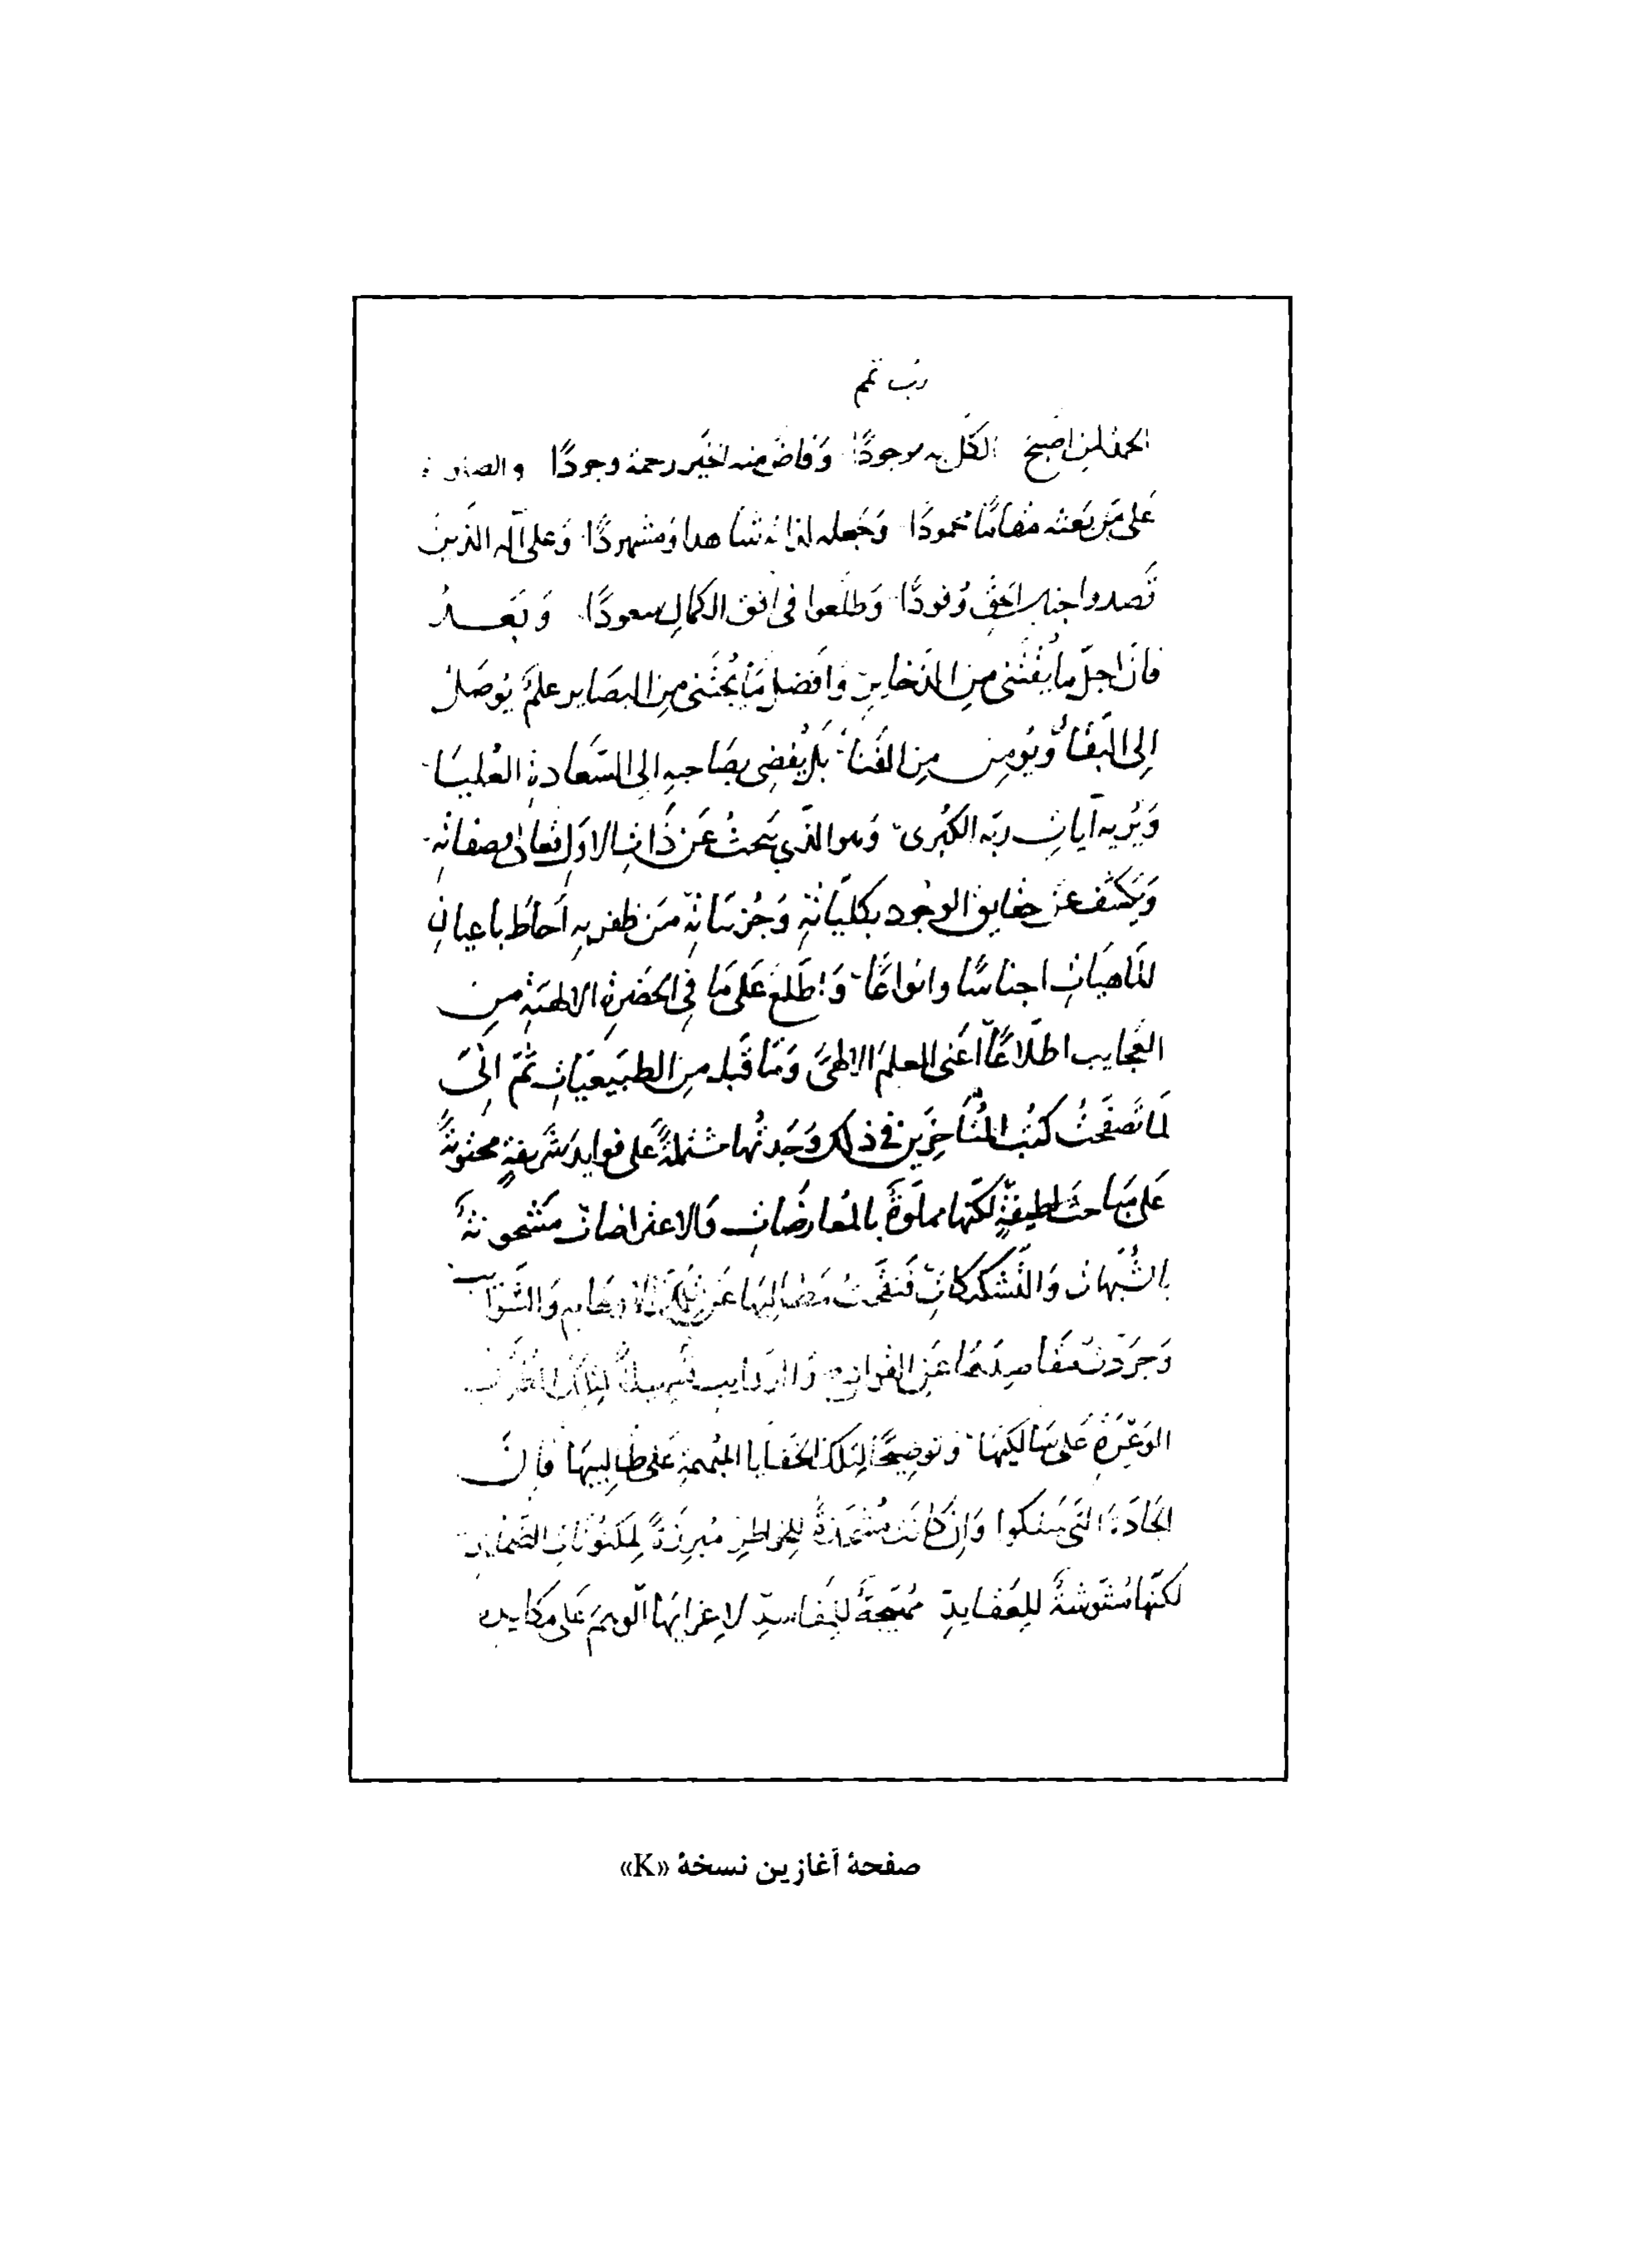 رب تمم
الحمد لمن اصبح الكل به موجودًا وَفاضَ منه الخَير رحمة وجودًا والصلوة
عَلى مَن بَعثه مقامًا محمودًا وَجَعله لذاته شاهدا وَمشهودًا وَعلى آله الذين
قَصدوا جناب الحَقِّ وُفودًا وَطلَعوا فى افق الكمالِ سعودًا وَبَعـــدُ
فانّ اجلّ ما يُقْتنى مِن الذخاير وَافضل مَا يُجتَنى مِن البصَاير علمٌ يُوصَلُ
إلى البَقَاء وَيُؤمِن مِن الفَنَاء بَل يُفضِى بصَاحبِهِ إلى السَّعادةِ العُليَا
وَيُرِيه آياتِ ربّه الكُبرى وَهو الذّي يَبحثُ عَن ذَاتِ الاوّل تعالى وصفاتِه
وَيَكشفُ عَن حقايق الوجُود بكليّاتِهِ وَجُزئيّاتِهِ مَن ظفر بِهِ اَحاطَ باعيانِ
المَاهيّاتِ اجناسًا وانواعًا وَاِطّلعَ عَلى مَا فِى الحَضرةِ الالهيّةِ مِن
العَجايب اطّلاعًا اَعنى العِلمَ الالهىّ وَمَا قَبله مِن الطبَيعيّاتِ ثمّ اِنّى
لمّا تَصَفّحتُ كتُبَ المُتَأَخِّرين فى ذلك وَجَدتُها مشتملةً على فوايدَ شَرِيفةٍ محتويةً
عَلى مَباحثَ لطيفةٍ لكنّها مملوّةً بالمُعارضَاتِ وَالاعتراضات مَشحونةً
بالشُبَهاتِ وَالتَشكيكاتِ فَنقّحتُ مَطَالبَها عَن تِلكَ الاوهام وَالشَوايب
وَجَرّدتُ مَقاصِدَهَا عَن القوادح وَالرَوايب تسهيلاً لتلكَ الطُرُق
الوَعِرَةِ عَلى سَالكيهَا وَتوضِيحًا لِتلكَ الخَفايا المُبهمةِ عَلى طَالِبيهَا فاِنّ
الجَادّةَ التى سَلكوا وَاِن كانَت مُشحِذةً لِلخَواطرِ مُبرِزةً لِمَكنُونَاتِ الضَمايرِ
لكنّها مُشَوّشةٌ لِلعَقايدِ مُهيّجةٌ لِلمَفاسدِ لاِغرائِهَا الوَهمَ عَلى مَكايده
صفحهٔ آغازین نسخهٔ «K»